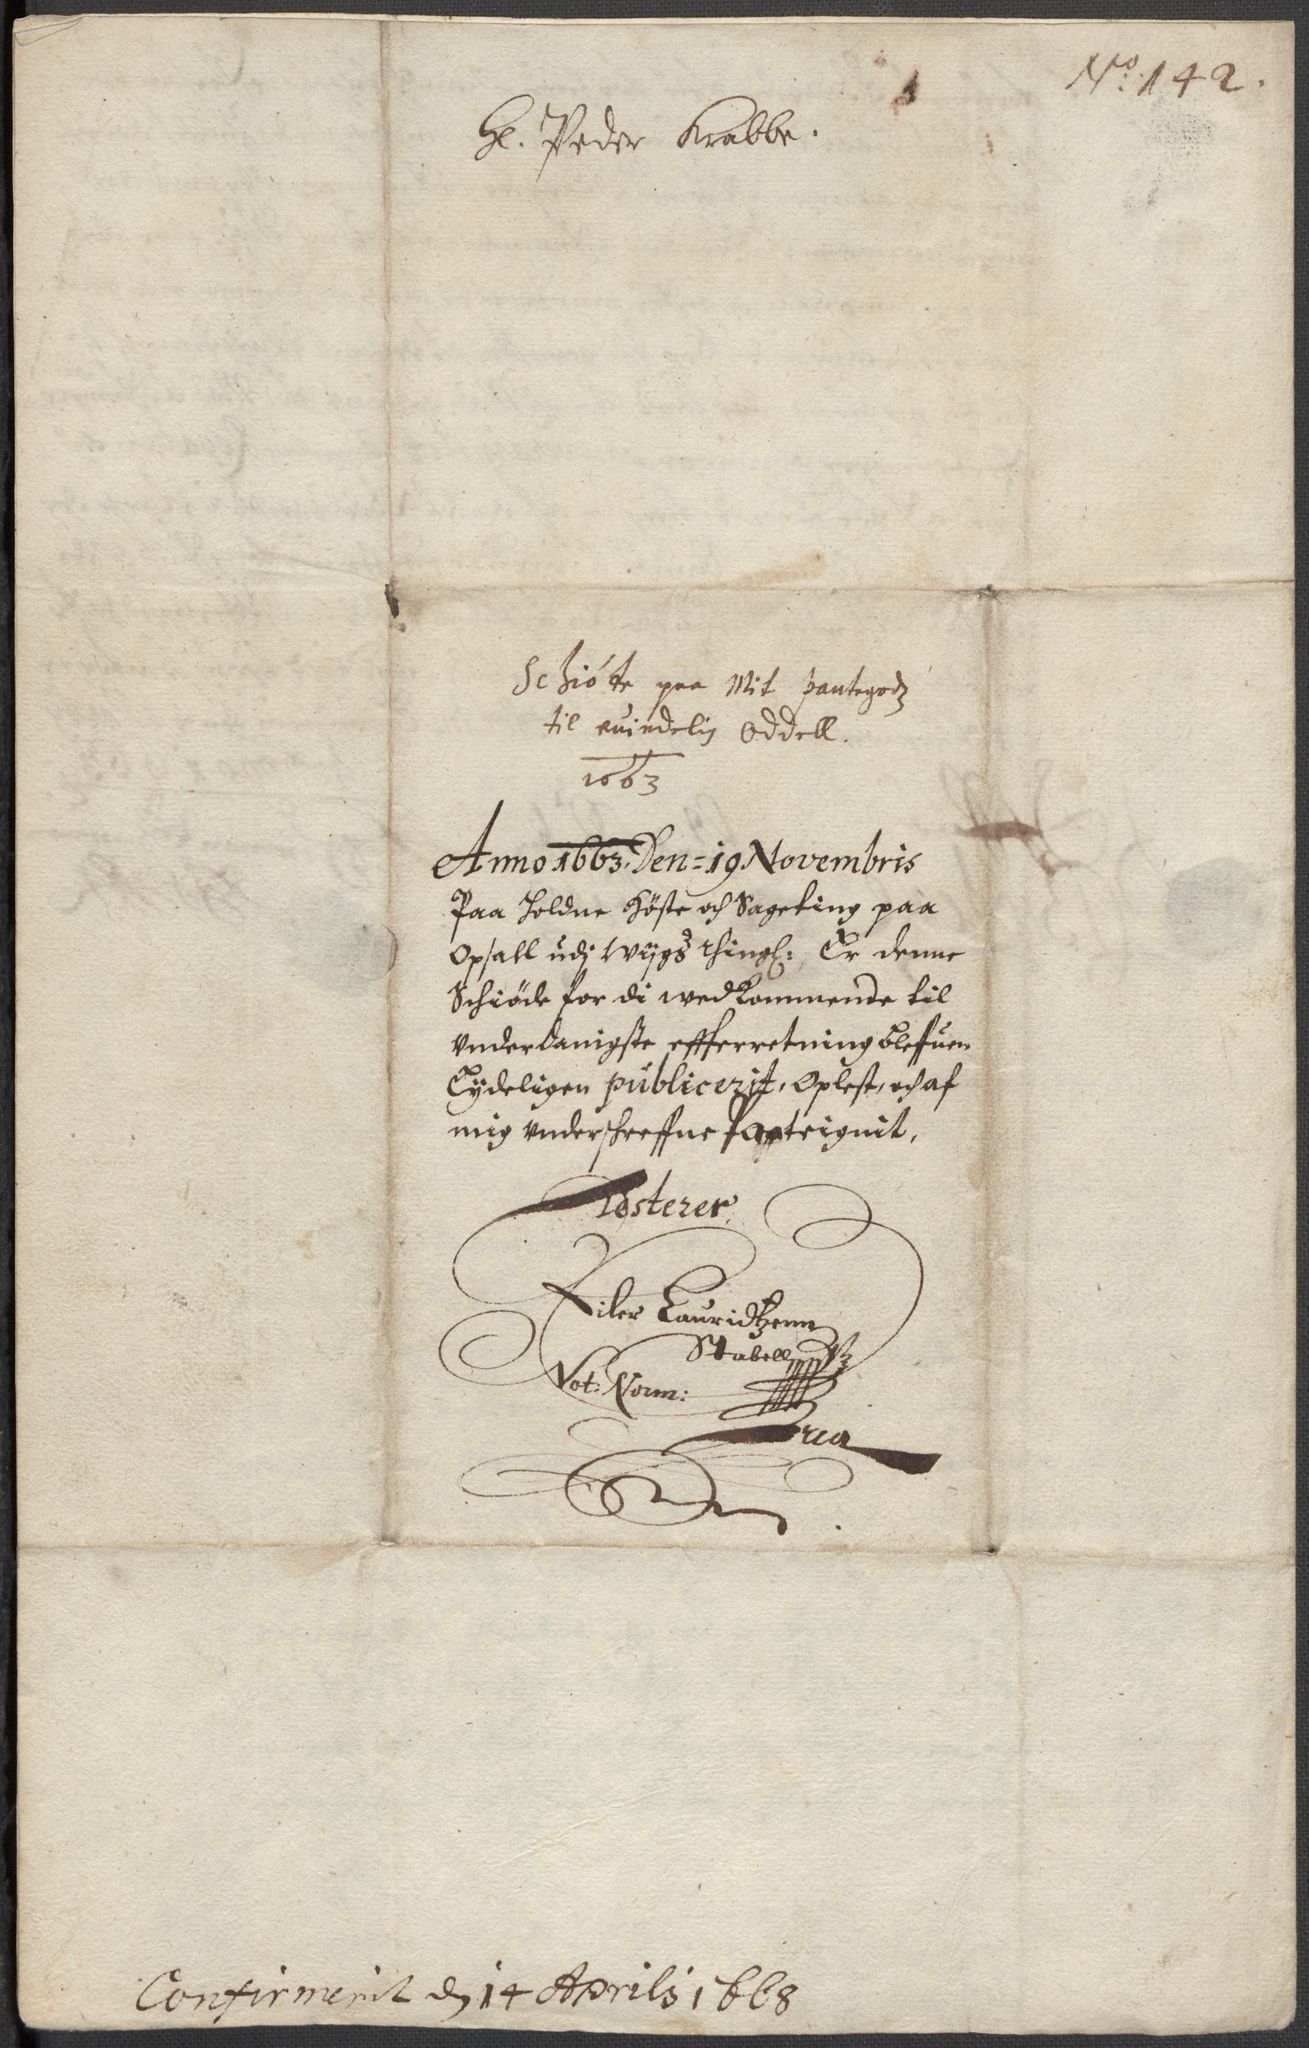 No: 142.
H. Peder Krabbe.
Schiöte paa Mit pantegodz
til euindelig Oddell.
1663
Anno 1663. Den = 19 Novembris
Paa holdne Höste och Sageting paa
Opsall udj Wijgs thingl: Er denne
Schiöde for di wedkommende til
vnderdanigste effterretning blefuen
Tydeligen publicerit, Oplest, och af
mig vnderschreffne
Testerer
Lauridtzenn
Stabell
Not: Norm:
Confirmerit d 14 Aprilis 1668